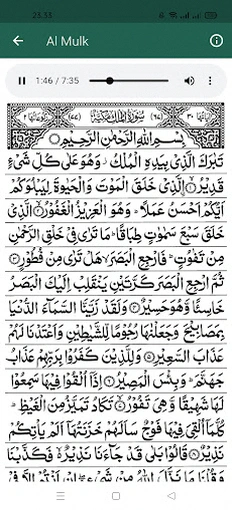 23.33
Al Mulk
1:46 / 7:35
سُوْرَةُ الْمُلْكِ مَكِّيَّةٌ
بِسْمِ اللهِ الرَّحْمٰنِ الرَّحِيْمِ
تَبٰرَكَ الَّذِيْ بِيَدِهِ الْمُلْكُ ۡ وَهُوَ عَلٰى كُلِّ شَيْءٍ
قَدِيْرُ ۙ﴿۱﴾ الَّذِيْ خَلَقَ الْمَوْتَ وَالْحَيٰوةَ لِيَبْلُوَكُمْ
اَيُّكُمْ اَحْسَنُ عَمَلًا ؕ وَهُوَ الْعَزِيْزُ الْغَفُوْرُ ۙ﴿۲﴾ الَّذِيْ
خَلَقَ سَبْعَ سَمٰوٰتٍ طِبَاقًا ؕ مَا تَرٰى فِيْ خَلْقِ الرَّحْمٰنِ
مِنْ تَفٰوُتٍ ؕ فَارْجِعِ الْبَصَرَ ۙ هَلْ تَرٰى مِنْ فُطُوْرٍ ﴿۳﴾
ثُمَّ ارْجِعِ الْبَصَرَ كَرَّتَيْنِ يَنْقَلِبْ اِلَيْكَ الْبَصَرُ
خَاسِئًا وَّهُوَ حَسِيْرٌ ﴿۴﴾ وَلَقَدْ زَيَّنَّا السَّمَآءَ الدُّنْيَا
بِمَصَابِيْحَ وَجَعَلْنٰهَا رُجُوْمًا لِّلشَّيٰطِيْنِ وَاَعْتَدْنَا لَهُمْ
عَذَابَ السَّعِيْرِ ﴿۵﴾ وَلِلَّذِيْنَ كَفَرُوْا بِرَبِّهِمْ عَذَابُ
جَهَنَّمَ ؕ وَبِئْسَ الْمَصِيْرُ ﴿۶﴾ اِذَآ اُلْقُوْا فِيْهَا سَمِعُوْا
لَهَا شَهِيْقًا وَّهِيَ تَفُوْرُ ۙ﴿۷﴾ تَكَادُ تَمَيَّزُ مِنَ الْغَيْظِ ؕ
كُلَّمَآ اُلْقِيَ فِيْهَا فَوْجٌ سَاَلَهُمْ خَزَنَتُهَآ اَلَمْ يَاْتِكُمْ
نَذِيْرٌ ﴿۸﴾ قَالُوْا بَلٰى قَدْ جَآءَنَا نَذِيْرٌ ۙ فَكَذَّبْنَا
وَقُلْنَا مَا نَزَّلَ اللهُ مِنْ شَيْءٍ ۚ اِنْ اَنْتُمْ اِلَّا فِيْ